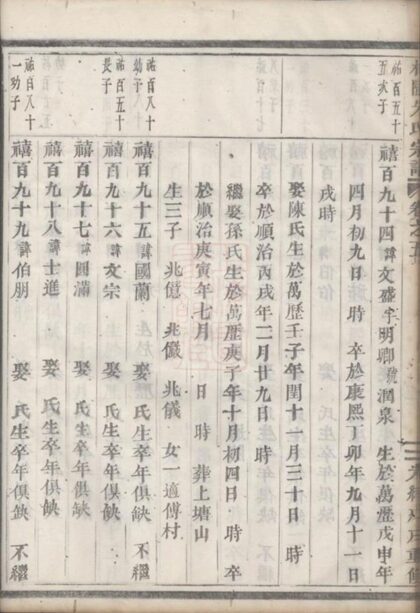 祐百五十
五次子
禧百九十四諱文盛字明卿號潤泉 生於萬歷戊申年
四月初九日 時 卒於康熙丁卯年九月十一日
戌時
娶陳氏生於萬歷壬子年閏十一月三十日 時
卒於順治丙戌年二月廿九日 時
繼娶孫氏生於萬歷庚子年十月初四日 時 卒
於順治庚寅年七月 日 時 葬上塘山
生三子 兆億 兆儼 兆儀 女一適傅村
祐百八十
幼子
禧百九十五諱國蘭 娶 氏生卒年俱缺 不繼
祐百五十
長子
禧百九十六諱文宗 娶 氏生卒年俱缺
禧百九十七諱圓滿 娶 氏生卒年俱缺
禧百九十八諱士進 娶 氏生卒年俱缺
祐百八十
一幼子
禧百九十九諱伯朋 娶 氏生卒年俱缺 不繼